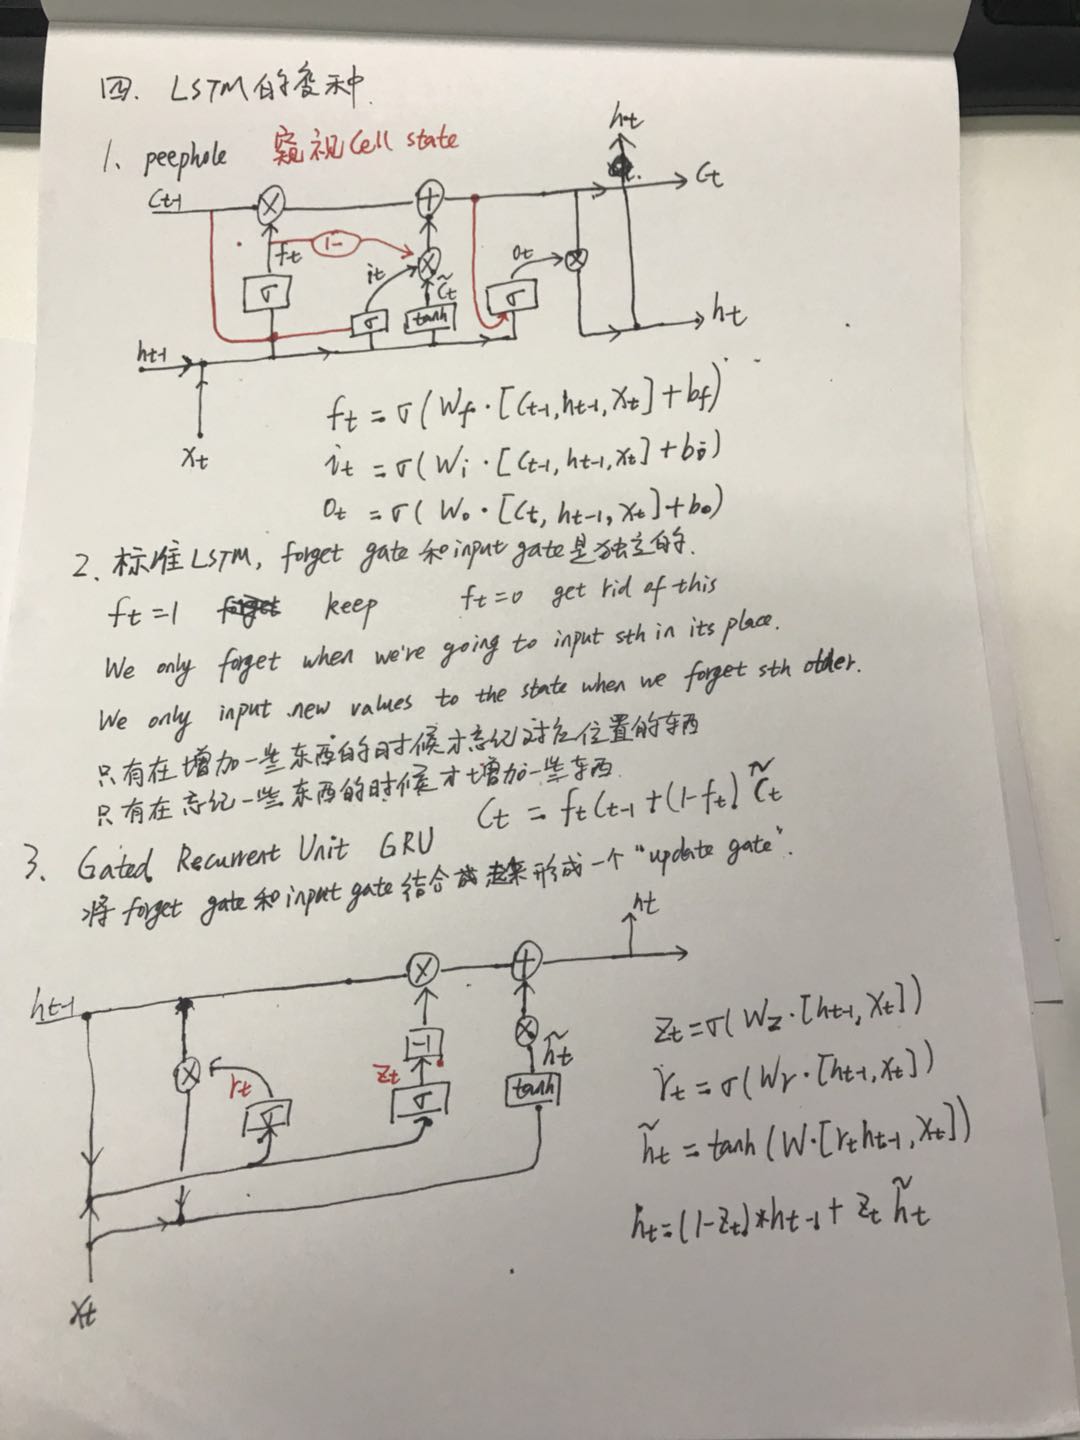 四. LSTM的变种
1、peephole 窥视Cell state
Ct-1 × + Ct
ht
ft 1- it × C̃t Ot ×
σ σ tanh σ
ht-1 ht
xt
ft = σ(Wf·[Ct-1, ht-1, xt] + bf)
it = σ(Wi·[Ct-1, ht-1, xt] + bi)
Ot = σ(Wo·[Ct, ht-1, xt] + bo)
2、标准LSTM, forget gate 和 input gate 是独立的.
ft = 1 keep ft = 0 get rid of this
We only forget when we're going to input sth in its place.
We only input new values to the state when we forget sth older.
只有在增加一些东西的时候才忘记对应位置的东西
只有在忘记一些东西的时候才增加一些东西.
Ct = ft Ct-1 + (1-ft) C̃t
3、Gated Recurrent Unit GRU
将 forget gate 和 input gate 结合起来形成一个 "update gate".
ht
ht-1 × +
× rt zt -1 × h̃t
σ σ tanh
xt
zt = σ(Wz·[ht-1, xt])
rt = σ(Wr·[ht-1, xt])
h̃t = tanh(W·[rt ht-1, xt])
ht = (1-zt)*ht-1 + zt h̃t